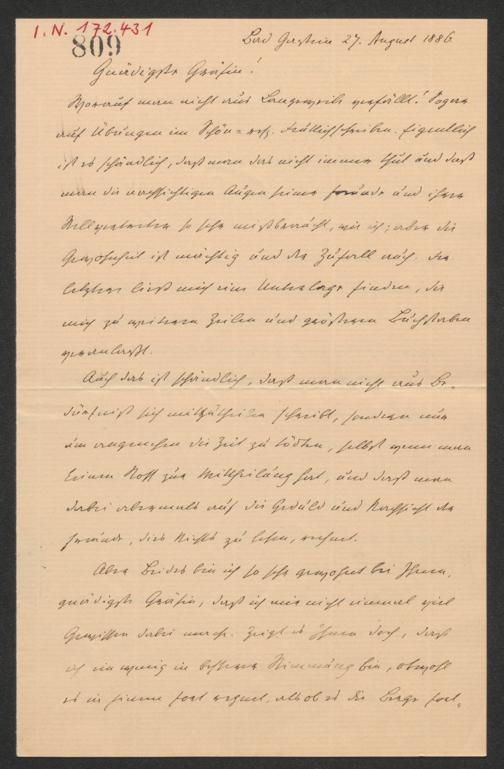 I. N. 172.431
809
Bad Gastein 27. August 1886
Gnädigste Gräfin!
Worauf man nicht aus Langeweile verfällt! Sogar
auf Übungen im Schön- resp. Deutlichschreiben. Eigentlich
ist es schändlich, daß man das nicht immer thut und daß
man die nachsichtigen Augen seiner Freunde und ihre
so sehr mißbraucht, wie ich; aber die
Gewohnheit ist mächtig und der Zufall auch. Der
letztere ließ mich eine Unterlage finden, die
mich zu weiteren Zeilen und größeren Buchstaben
veranlaßt.
Auch das ist schändlich, daß man nicht aus Be-
dürfniß sich mitzutheilen schreibt, sondern nur
um angenehm die Zeit zu tödten, selbst wenn man
keinen Stoff zur Mittheilung hat, und daß man
dabei abermals auf die Geduld und Nachsicht der
Freunde, dies Nichts zu lesen, rechnet.
Aber Beides bin ich so sehr gewohnt bei Ihnen,
gnädigste Gräfin, daß ich mir nicht einmal viel
Gewissen dabei mache. Zeigt es Ihnen doch, daß
ich ein wenig in besserer Stimmung bin, obwohl
es in einem fort regnet, als ob es die Berge fort-